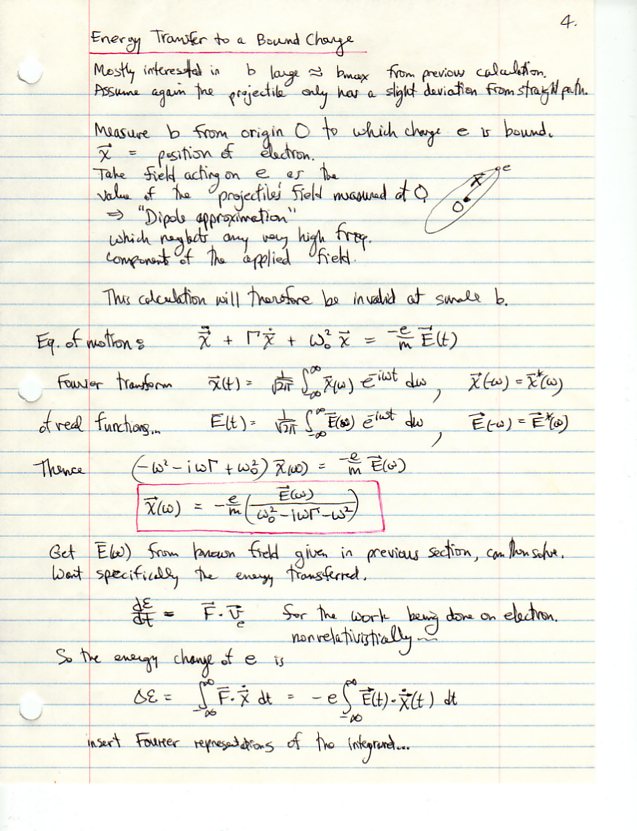 4.
Energy Transfer to a Bound Charge
Mostly interested in b large ≈ bmax from previous calculation.
Assume again the projectile only has a slight deviation from straight path.
Measure b from origin O to which charge e is bound.
x⃗ = position of electron.
Take field acting on e as the
value of the projectile's field measured at O
⇒ "Dipole approximation"
which neglects any very high freq.
components of the applied field.
e
x⃗
O
This calculation will therefore be invalid at small b.
Eq. of motion: ẍ⃗ + Γẋ⃗ + ω₀² x⃗ = -e/m E⃗(t)
Fourier transform x⃗(t) = 1/√2π ∫_{-∞}^{∞} x⃗(ω) e^{-iωt} dω, x⃗(-ω) = x⃗*(ω)
of real functions... E(t) = 1/√2π ∫_{-∞}^{∞} E⃗(ω) e^{-iωt} dω, E⃗(-ω) = E⃗*(ω)
Thence (-ω² - iωΓ + ω₀²) x⃗(ω) = -e/m E⃗(ω)
x⃗(ω) = -e/m (E⃗(ω) / (ω₀² - iωΓ - ω²))
Get E⃗(ω) from known field given in previous section, can then solve.
Want specifically the energy transferred.
dε/dt = F⃗ · v⃗_e for the work being done on electron.
nonrelativistically...
So the energy change of e is
Δε = ∫_{-∞}^{∞} F⃗ · ẋ⃗ dt = -e ∫_{-∞}^{∞} E⃗(t) · ẋ⃗(t) dt
insert Fourier representations of the integrand...